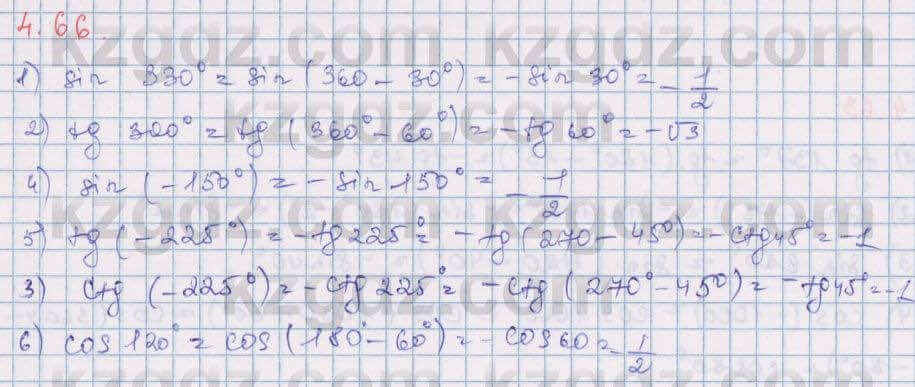 4.66.
1) sin 330° = sin (360 - 30°) = -sin 30° = -1/2
2) tg 300° = tg (360° - 60°) = -tg 60° = -√3
4) sin (-150°) = -sin 150° = -1/2
5) tg (-225°) = -tg 225° = -tg (270 - 45°) = -ctg 45° = -1
3) ctg (-225°) = -ctg 225° = -ctg (270° - 45°) = -tg 45° = -1
6) cos 120° = cos (180° - 60°) = -cos 60 = -1/2
kzgdz.com